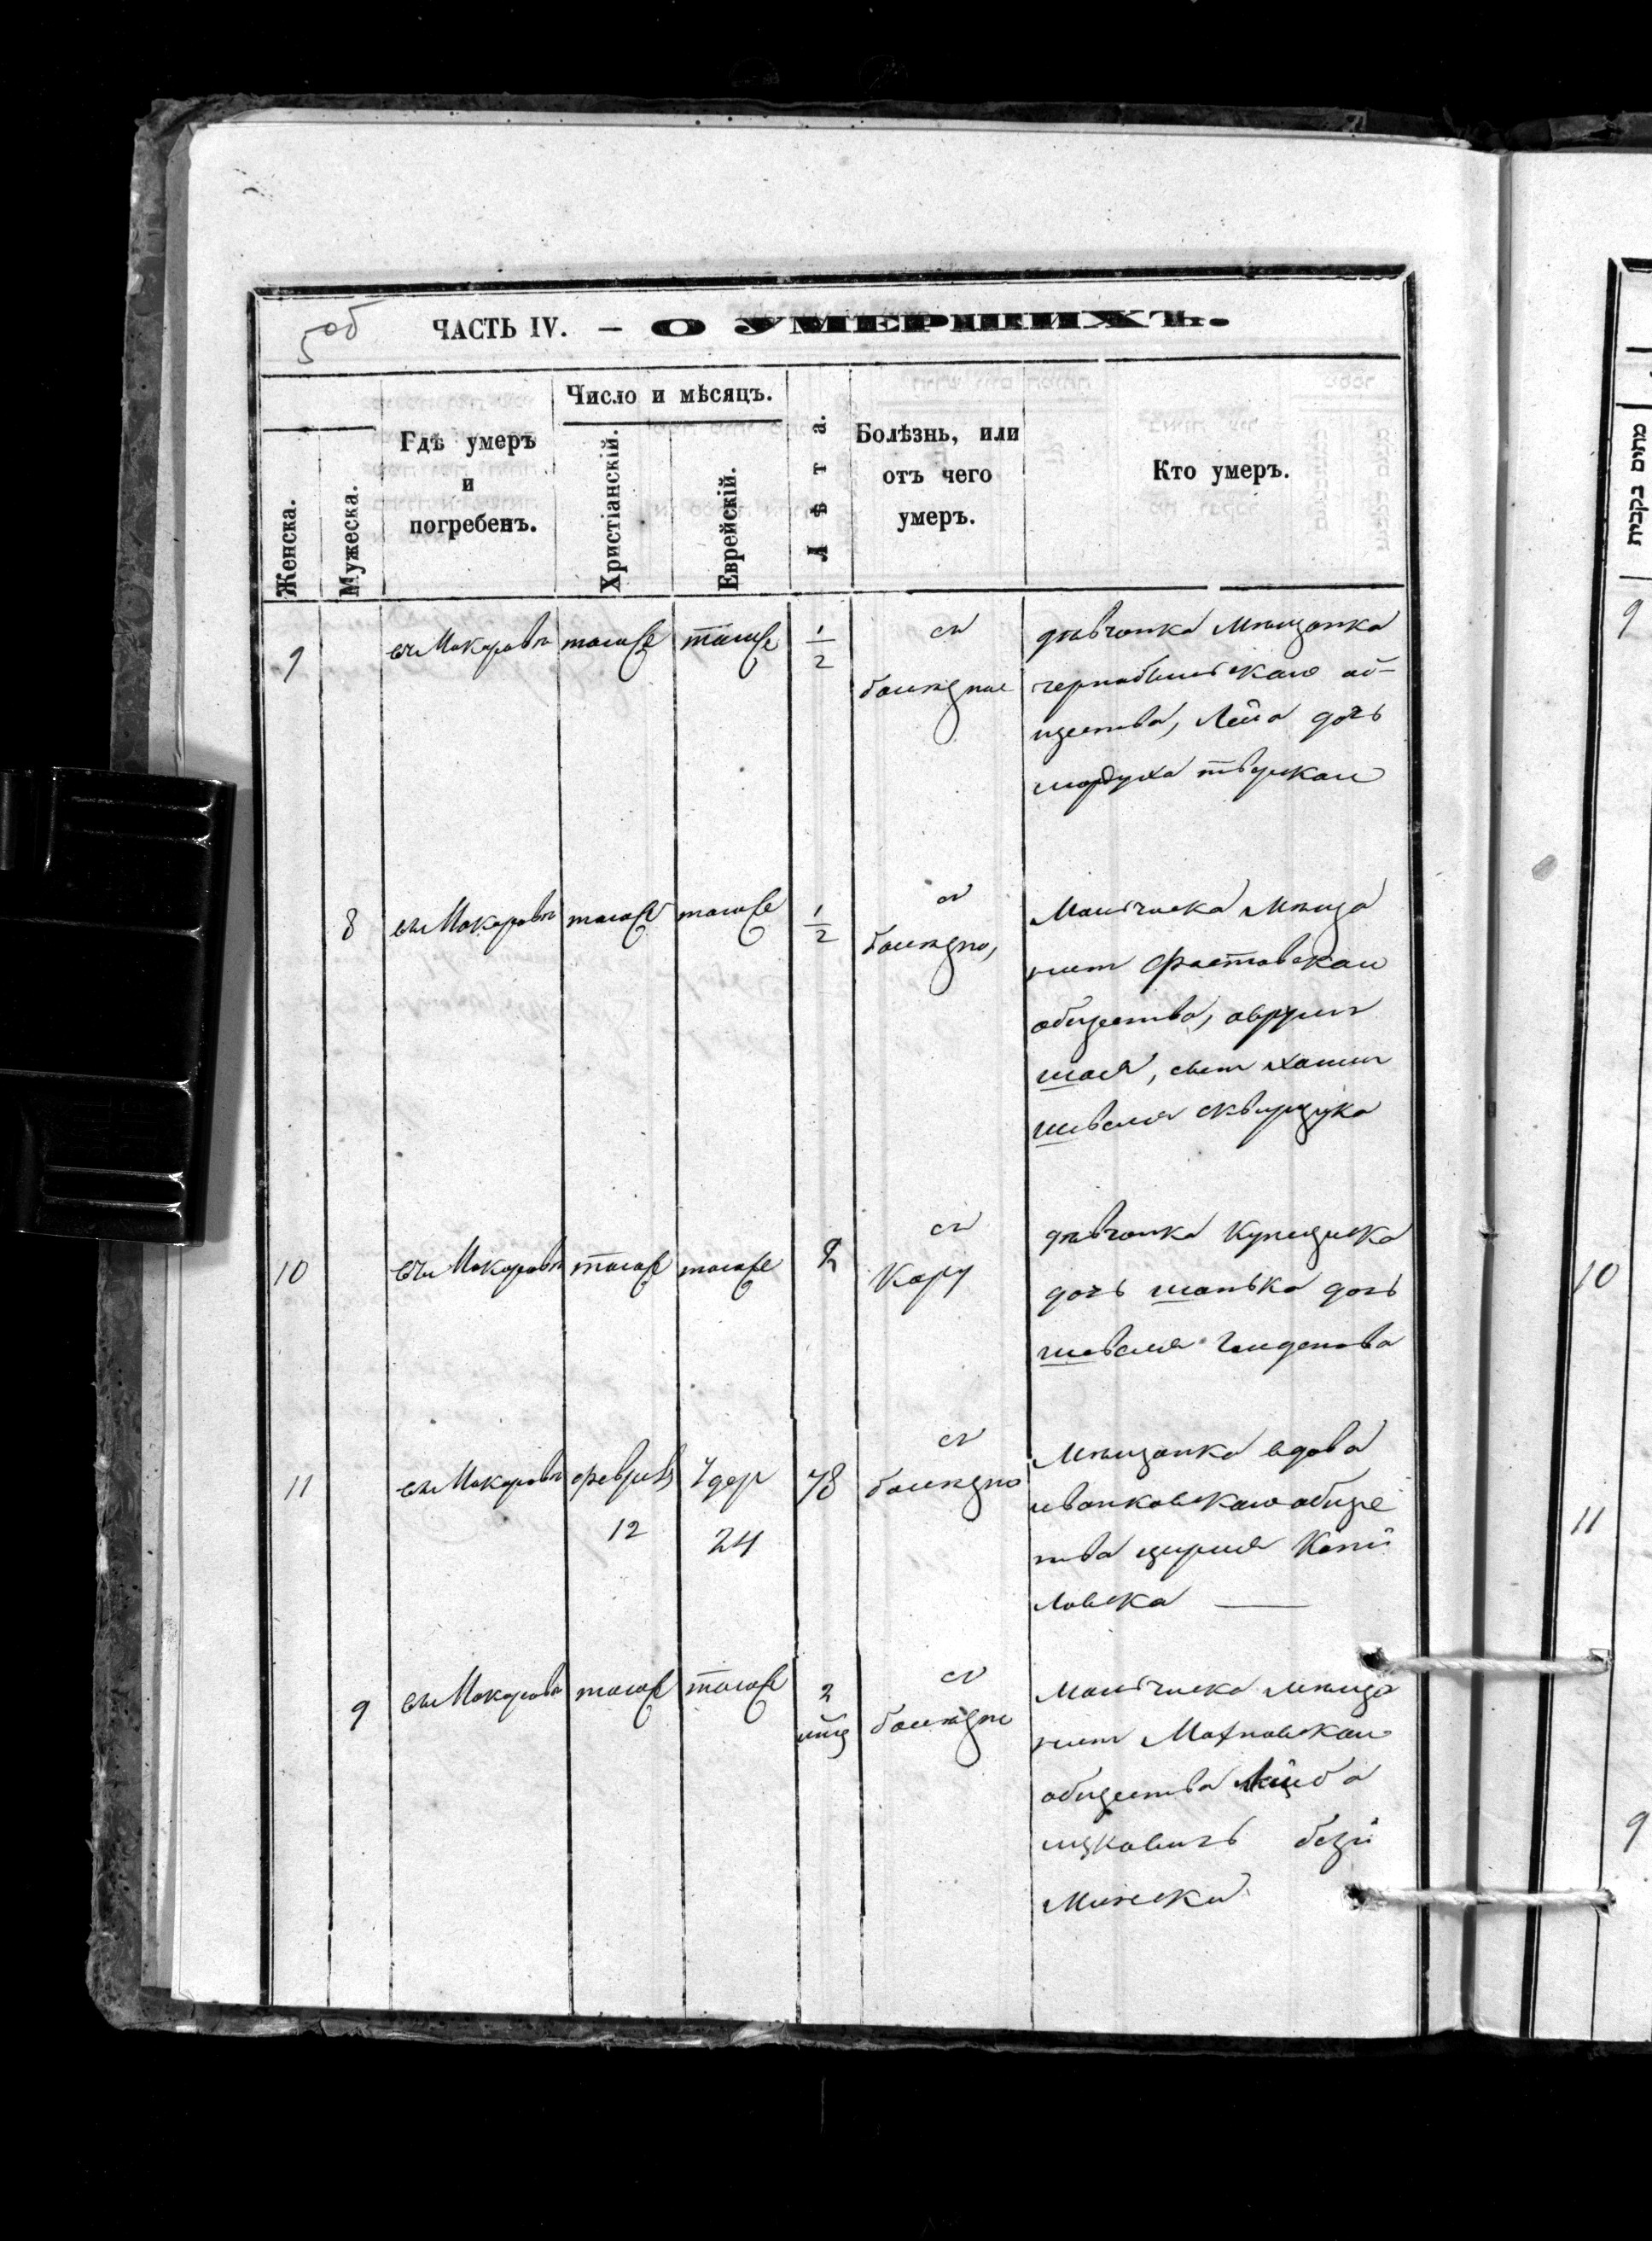 5об
ЧАСТЬ IV. — О УМЕРШИХЪ.
Женска.
Мужеска.
Гдѣ умеръ
и
погребенъ.
Число и мѣсяцъ.
Христіанскій.
Еврейскій.
Лѣта.
Болѣзнь, или
отъ чего
умеръ.
Кто умеръ.
9
въ Макаровѣ
тогоже
тогоже
1/2
съ
дѣвчонка мѣщанка
чернобыльскаго об-
щества, Лейа дочь
мордуха
8
въ Макаровѣ
тогоже
тогоже
1/2
съ
Мальчика мѣща
нинъ Фастовскаго
общества, аврумъ
шаея, сынъ хаимъ
шевеля сквирчука
10
въ Макаровѣ
тогоже
тогоже
2
съ
Кору
дѣвчонка Купециска
дочь шанька дочь
шевеля
11
въ Макаровѣ
февраля
12
Адер
24
78
съ
мѣщанка вдова
иванковскаго обще
тва цирля Копи
ловска —
9
въ Макаровѣ
тогоже
тогоже
2
съ
Мальчика мѣща
нинъ Махновскаго
общества Лейба
ицковичъ
מתים נקבות
9
10
11
9